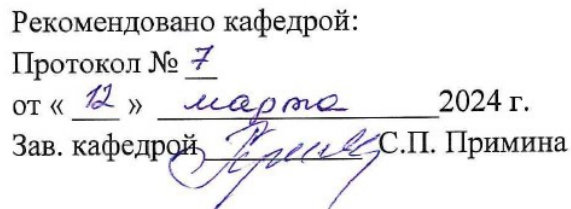 Рекомендовано кафедрой:
Протокол № 7
от « 12 » марта 2024 г.
Зав. кафедрой С.П. Примина